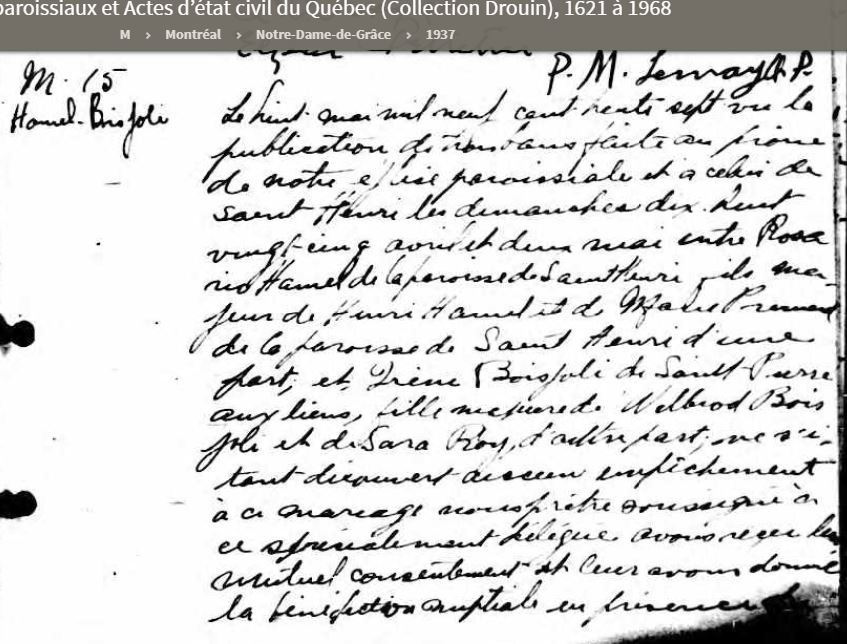 paroissiaux et Actes d’état civil du Québec (Collection Drouin), 1621 à 1968
M > Montréal > Notre-Dame-de-Grâce > 1937
P. M. Lemay O. P.
M. 15
Hamel-Boisjoli
Le huit mai mil neuf cent trente sept vu la
publication de trois bans faite au prône
de notre église paroissiale et a celui de
Saint Henri les dimanches dix-huit
vingt-cinq avril et deux mai entre Rosa
rio Hamel de la paroisse de Saint Henri fils ma-
jeur de Henri Hamel et de Marie
de la paroisse de Saint Henri d'une
part, et Irène Boisjoli de Saint-Pierre
aux liens, fille majeure de Wilbrod Bois
joli et de Sara Roy, d'autre part, ne s'é-
tant découvert aucun empêchement
à ce mariage nous prêtre soussigné à
ce spécialement délégué avons reçu leur
mutuel consentement et leur avons donné
la bénédiction nuptiale en présence